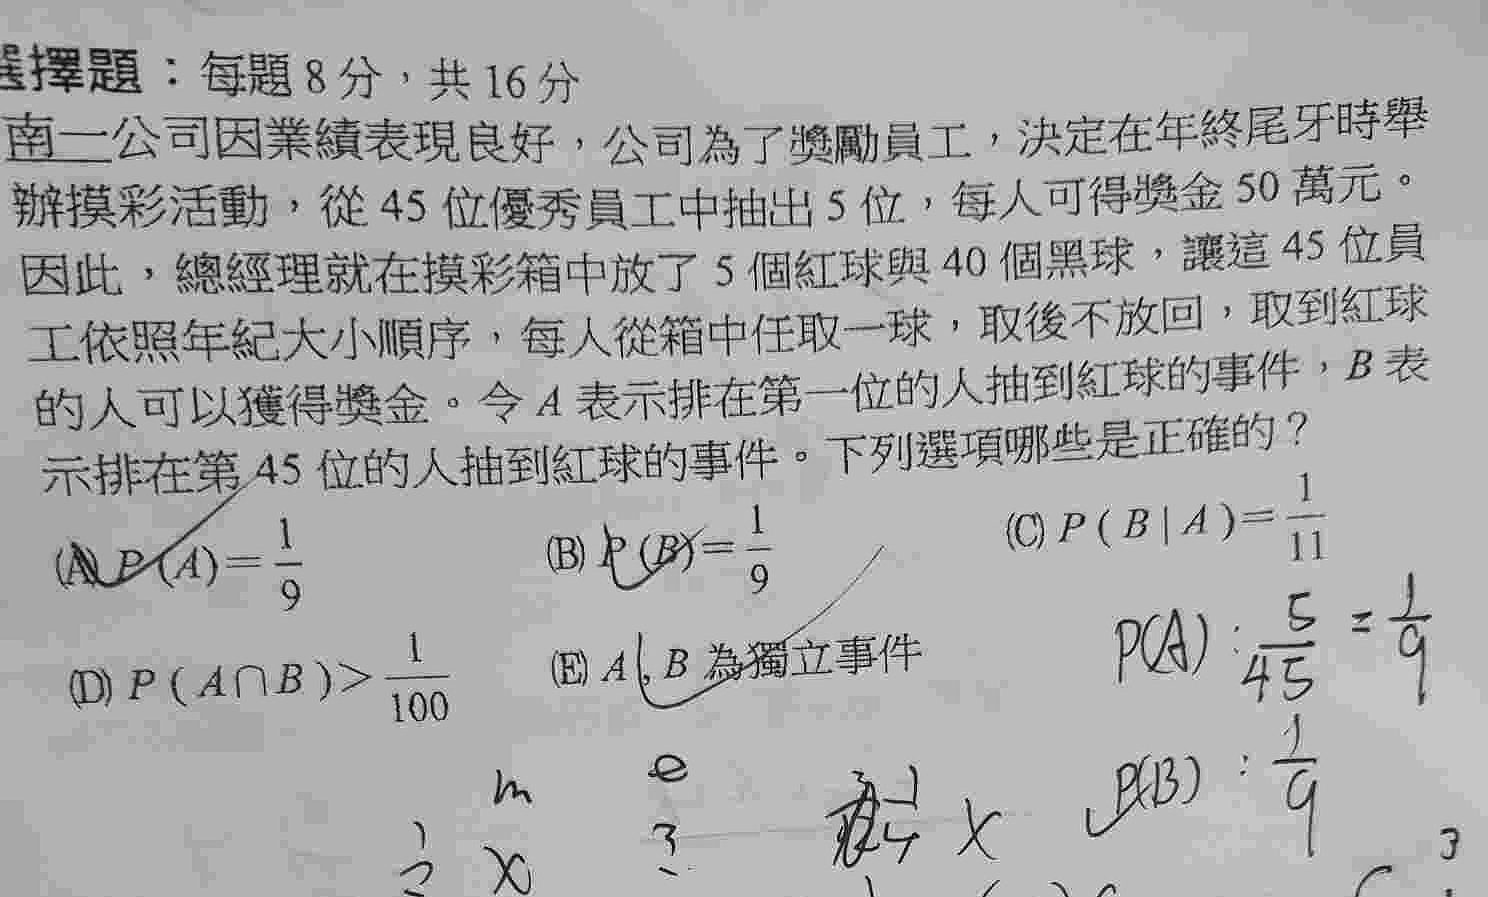 選擇題：每題 8 分，共 16 分
南一公司因業績表現良好，公司為了獎勵員工，決定在年終尾牙時舉
辦摸彩活動，從 45 位優秀員工中抽出 5 位，每人可得獎金 50 萬元。
因此，總經理就在摸彩箱中放了 5 個紅球與 40 個黑球，讓這 45 位員
工依照年紀大小順序，每人從箱中任取一球，取後不放回，取到紅球
的人可以獲得獎金。令 A 表示排在第一位的人抽到紅球的事件，B 表
示排在第 45 位的人抽到紅球的事件。下列選項哪些是正確的？
(A) P(A)=1/9 (B) P(B)=1/9 (C) P(B|A)=1/11
(D) P(A∩B)>1/100 (E) A，B 為獨立事件
P(A) : 5/45 = 1/9
P(B) : 1/9
m e